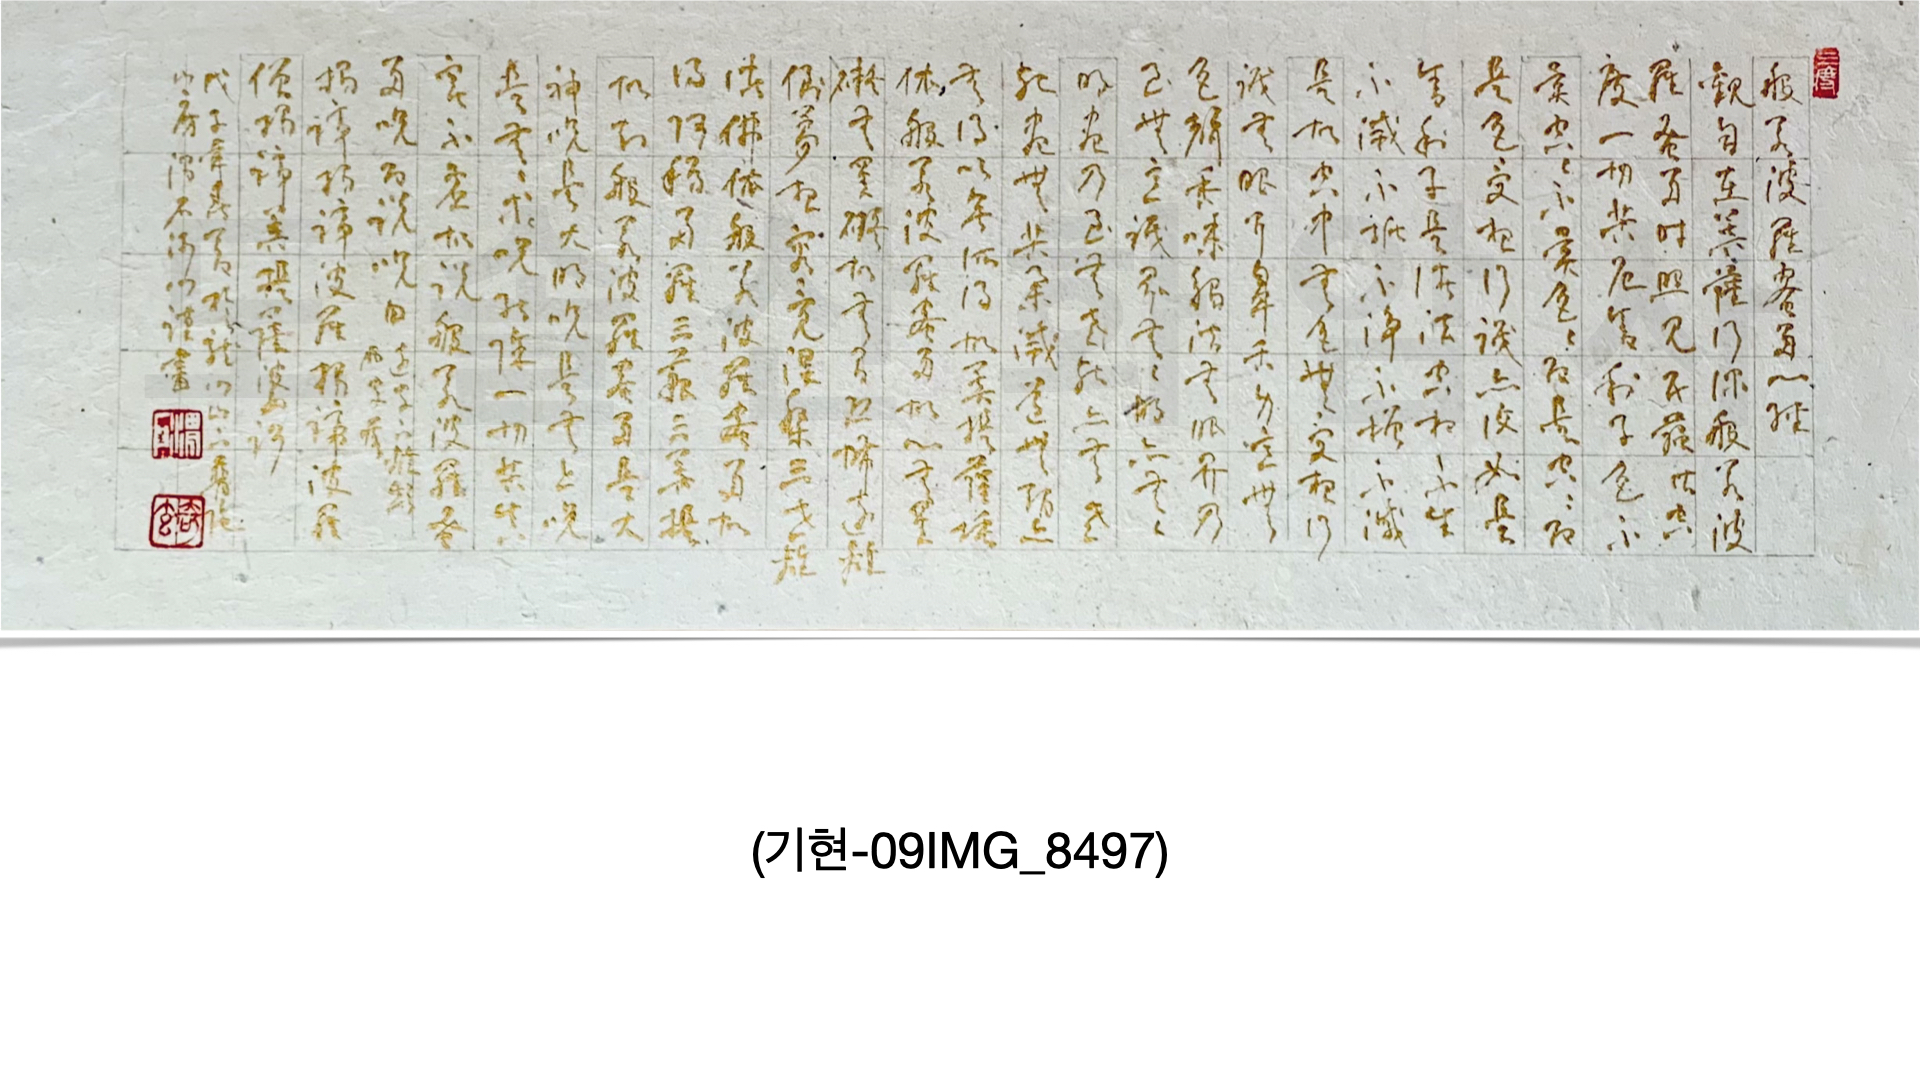 般若波羅蜜多心經
觀自在菩薩行深般若波
羅蜜多時照見五蘊皆空
度一切苦厄舍利子色不
異空〻不異色〻即是空〻即
是色受想行識亦復如是
舍利子是諸法空相不生
不滅不垢不淨不增不減
是故空中无色無受想行
識无眼耳鼻舌身意無
色聲香味觸法无眼界乃
至無意識界无〻明亦无〻
明盡乃至無老死亦无老
死盡無苦集滅道無智亦
无得以無所得故菩提薩埵
依般若波羅蜜多故心无罣
礙无罣礙故无有恐怖遠離
倒夢想究竟涅槃三世
諸佛依般若波羅蜜多故
得阿耨多羅三藐三菩提
故知般若波羅蜜多是大
神呪是大明呪是无上呪
是无〻等呪能除一切苦真
實不虛故說般若波羅蜜
多呪即說呪曰
揭諦揭諦波羅揭諦波羅
僧揭諦菩提薩婆訶
戊子
山房 謹書
(기현-09IMG_8497)